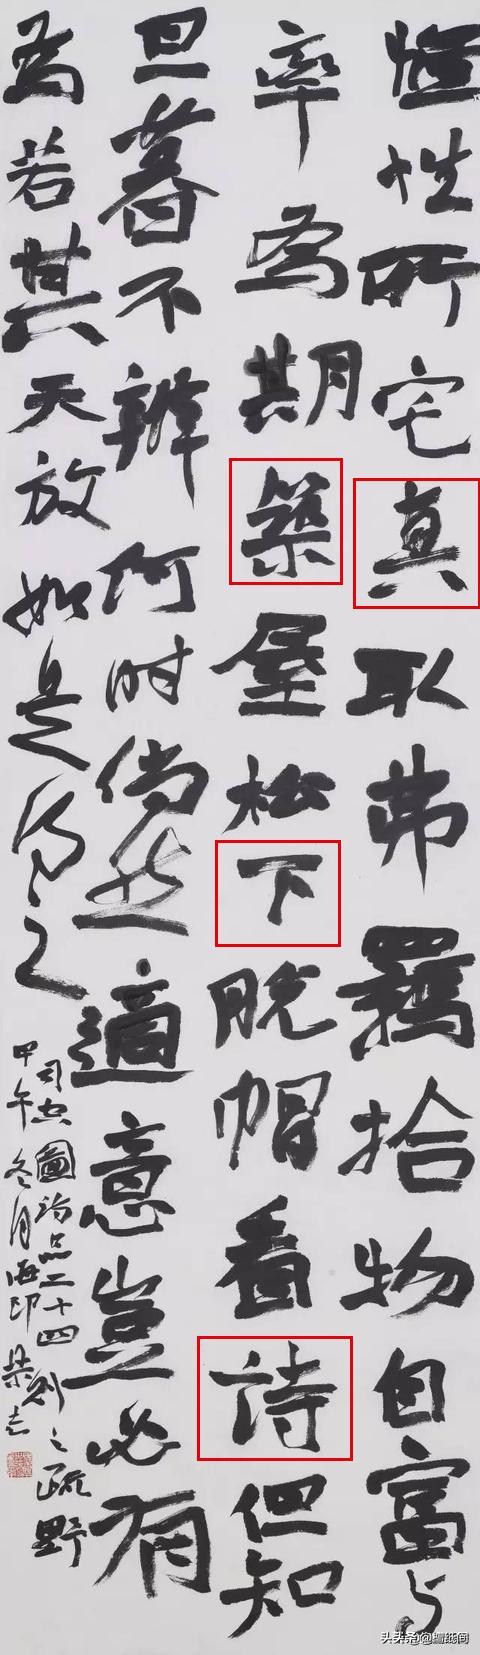 惟性所宅真取弗羈拾物自富与
率為期築屋松下脫帽看詩但知
旦暮不辨何时倘然適意豈必有
為若其天放如是得之
司空圖诗品二十四則之疏野
甲午冬月海印
头条